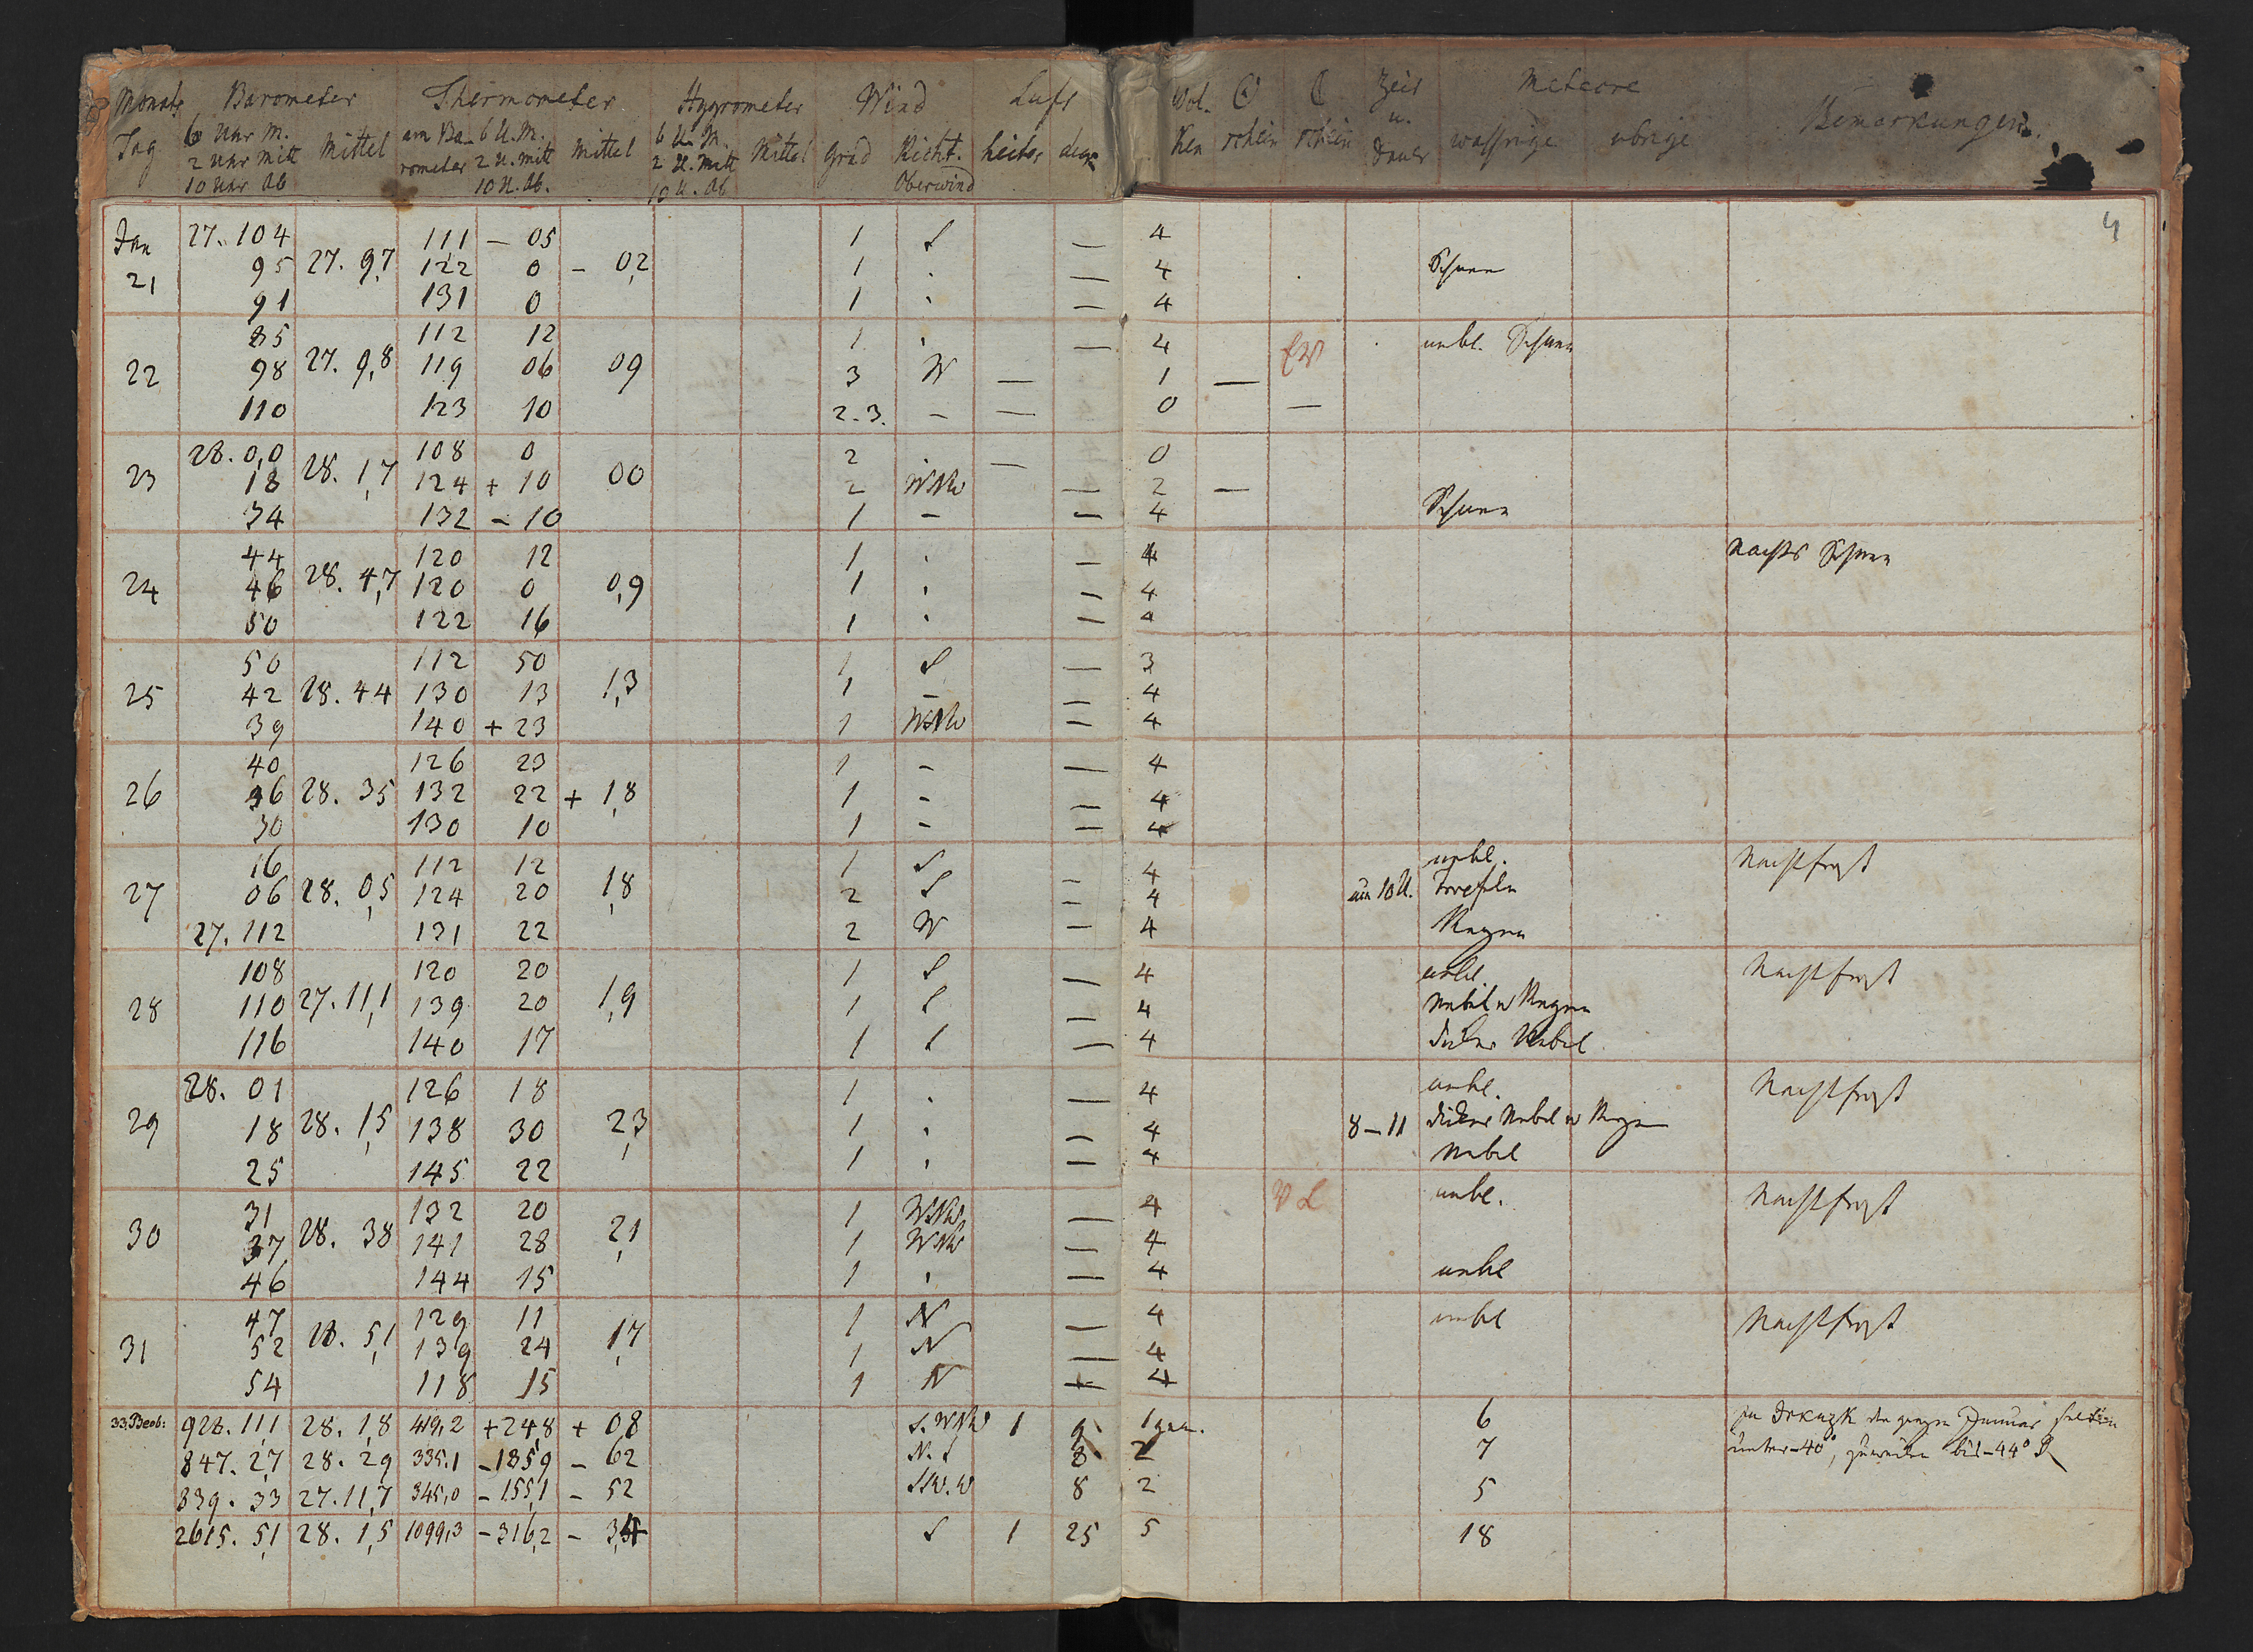 Monats Barometer Thermometer Hygrometer Wind Luft Wol- ☉ ☾ Zeit Meteore Bemerkungen.
Tag 6 Uhr M. Mittel am Ba- 6 U. M. Mittel 6 U. M. Mittel Grad Richt. heiter ken schein schein u. wassrige ubrige
2 Uhr Mitt rometer 2 U. Mitt 2 U. Mitt Dauer
10 Uhr Ab 10 U. Ab. 10 U. Ab Oberwind
4
Jan 27. 104 111 – 05 1 S — 4
21 95 27. 9,7 122 0 – 0,2 1 . — 4 Schnee
91 131 0 1 . — 4
85 112 12 1 . — 4 unbl. Schnee
22 98 27. 9,8 119 06 09 3 W — 1 —
110 123 10 2-3. – — 0 —
28. 0,0 108 0 2 . — 0
23 18 28. 1,7 124 + 10 00 2 WNW — 2 —
34 132 – 10 1 – — 4 Schnee
44 120 12 1 . — 4 Nachts Schnee
24 46 28. 4,7 120 0 0,9 1 . — 4
50 122 16 1 . — 4
50 112 50 1 S — 3
25 42 28. 44 130 13 1,3 1 – — 4
39 140 + 23 1 WNW — 4
40 126 23 1 – — 4
26 36 28. 35 132 22 + 1,8 1 – — 4
30 130 10 1 – — 4
16 112 12 1 S – 4 unbl. Nachtfrost
27 06 28. 0,5 124 20 1,8 2 S – 4 um 10 U. Tropfeln
27. 112 131 22 2 W – 4 Regen
108 120 20 1 S — 4 unbl. Nachtfrost
28 110 27. 11,1 139 20 1,9 1 S — 4 Nebel u Regen
116 140 17 1 S — 4 dicker Nebel
28. 01 126 18 1 . — 4 unbl. Nachtfrost
29 18 28. 1,5 138 30 2,3 1 . — 4 8–11 dicker Nebel u Regen
25 145 22 1 . — 4 Nebel
31 132 20 1 WNW — 4 unbl. Nachtfrost
30 37 28. 38 141 28 2,1 1 WNW — 4
46 144 15 1 . — 4 unbl
47 129 11 1 N — 4 unbl Nachtfrost
31 52 28. 5,1 139 24 1,7 1 N — 4
54 118 15 1 N — 4
33 Beob: 928. 11,1 28. 1,8 419,2 + 24,8 + 0,8 S. WNW 1 9 1 6 Zu Irkuzk den ganzen Januar selten
847. 2,7 28. 29 335,1 – 185,9 – 62 N. S 8 2 7 unter –40°, zuweilen bis –44° R
839. 33 27. 11,7 345,0 – 155,1 – 52 SW. W 8 2 5
2615. 5,1 28. 1,5 1099,3 – 316,2 – 3,4 S 1 25 5 18